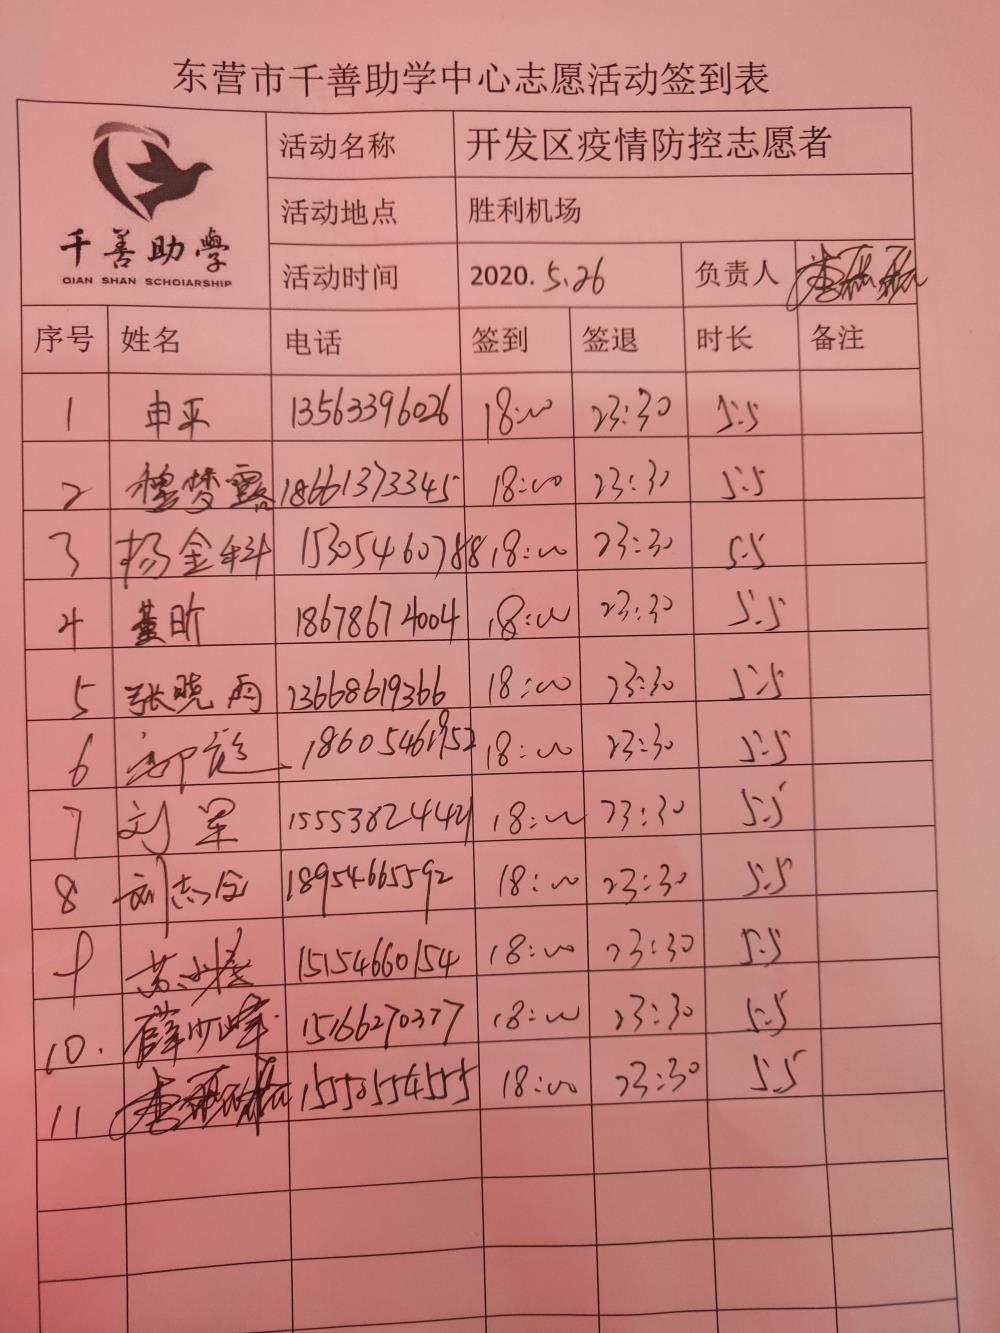 东营市千善助学中心志愿活动签到表
千善助学
QIAN SHAN SCHOIARSHIP
活动名称 开发区疫情防控志愿者
活动地点 胜利机场
活动时间 2020.5.26 负责人
序号 姓名 电话 签到 签退 时长 备注
1 申平 13563396026 18:00 23:30 5.5
2 穆梦露 18661373345 18:00 23:30 5.5
3 杨金科 15305460788 18:00 23:30 5.5
4 董昕 18678674004 18:00 23:30 5.5
5 张晓雨 13668619366 18:00 23:30 5.5
6 18605461952 18:00 23:30 5.5
7 刘军 18:00 23:30 5.5
8 刘志全 18954665592 18:00 23:30 5.5
9 15154660154 18:00 23:30 5.5
10. 薛少峰 15166270377 18:00 23:30 5.5
11 15550554555 18:00 23:30 5.5